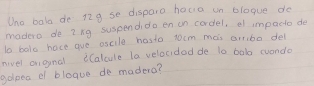 Una bala de 12 g se disparo hacia un bloque de
madera de 2 kg suspendido en un cordel, el impacto de
la bala hace que oscile hasta 10cm mas arriba del
nivel original ¿Calcule la velocidad de la bala cuando
golpea el bloque de madera?